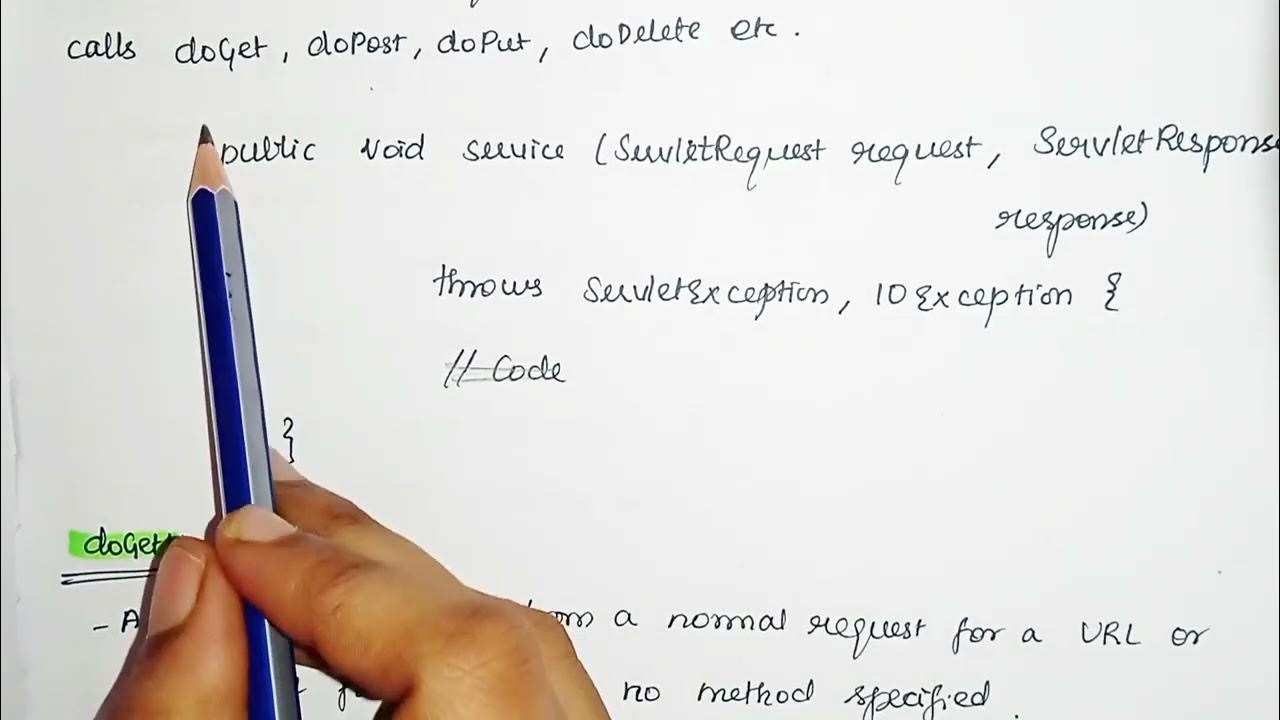 calls doGet, doPost, doPut, doDelete etc.
public void service (ServletRequest request, ServletResponse
response)
throws ServletException, IOException {
// Code
}
doGet
- A a normal request for a URL or
no method specified.